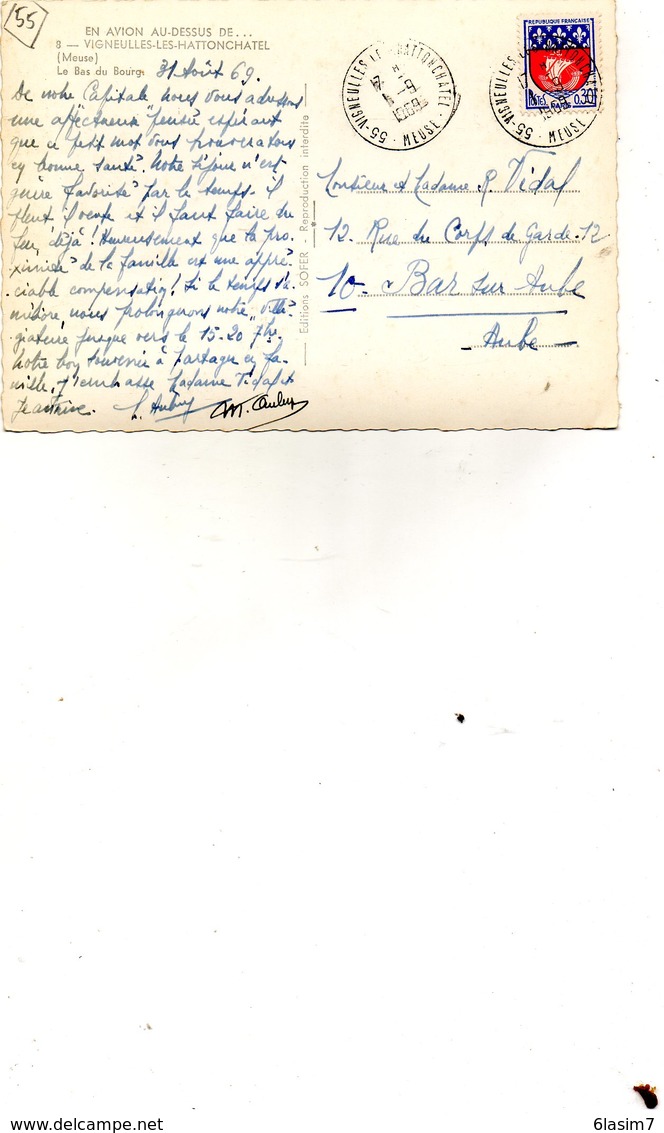 55
EN AVION AU-DESSUS DE...
8 — VIGNEULLES-LES-HATTONCHATEL
(Meuse)
Le Bas du Bourg
31 Août 69.
De notre Capitale nous vous adressons
une affectueuse pensée espérant
que ce petit mot vous trouvera tous
en bonne santé. Notre séjour n'est
guère favorisé par le temps. il
pleut il vente et il faut faire du
feu, déjà! Heureusement que la pro
ximité de la famille est une appré
ciable compensation! Si le temps s'a
méliore nous prolongerons notre "villé
giature jusque vers le 15-20 7bre
Notre bon souvenir à partager en fa
mille, j'embrasse Madame Vidal et
L. Aubry M. Aubry
Editions SOFER - Reproduction interdite
55-VIGNEULLES LES HATTONCHATEL
1969
MEUSE
REPUBLIQUE FRANÇAISE
POSTES 0,30
PARIS
55-VIGNEULLES
MEUSE
Monsieur et Madame R. Vidal
12, Rue du Corps de Garde. 12
10 - Bar sur Aube
- Aube -
6lasim7